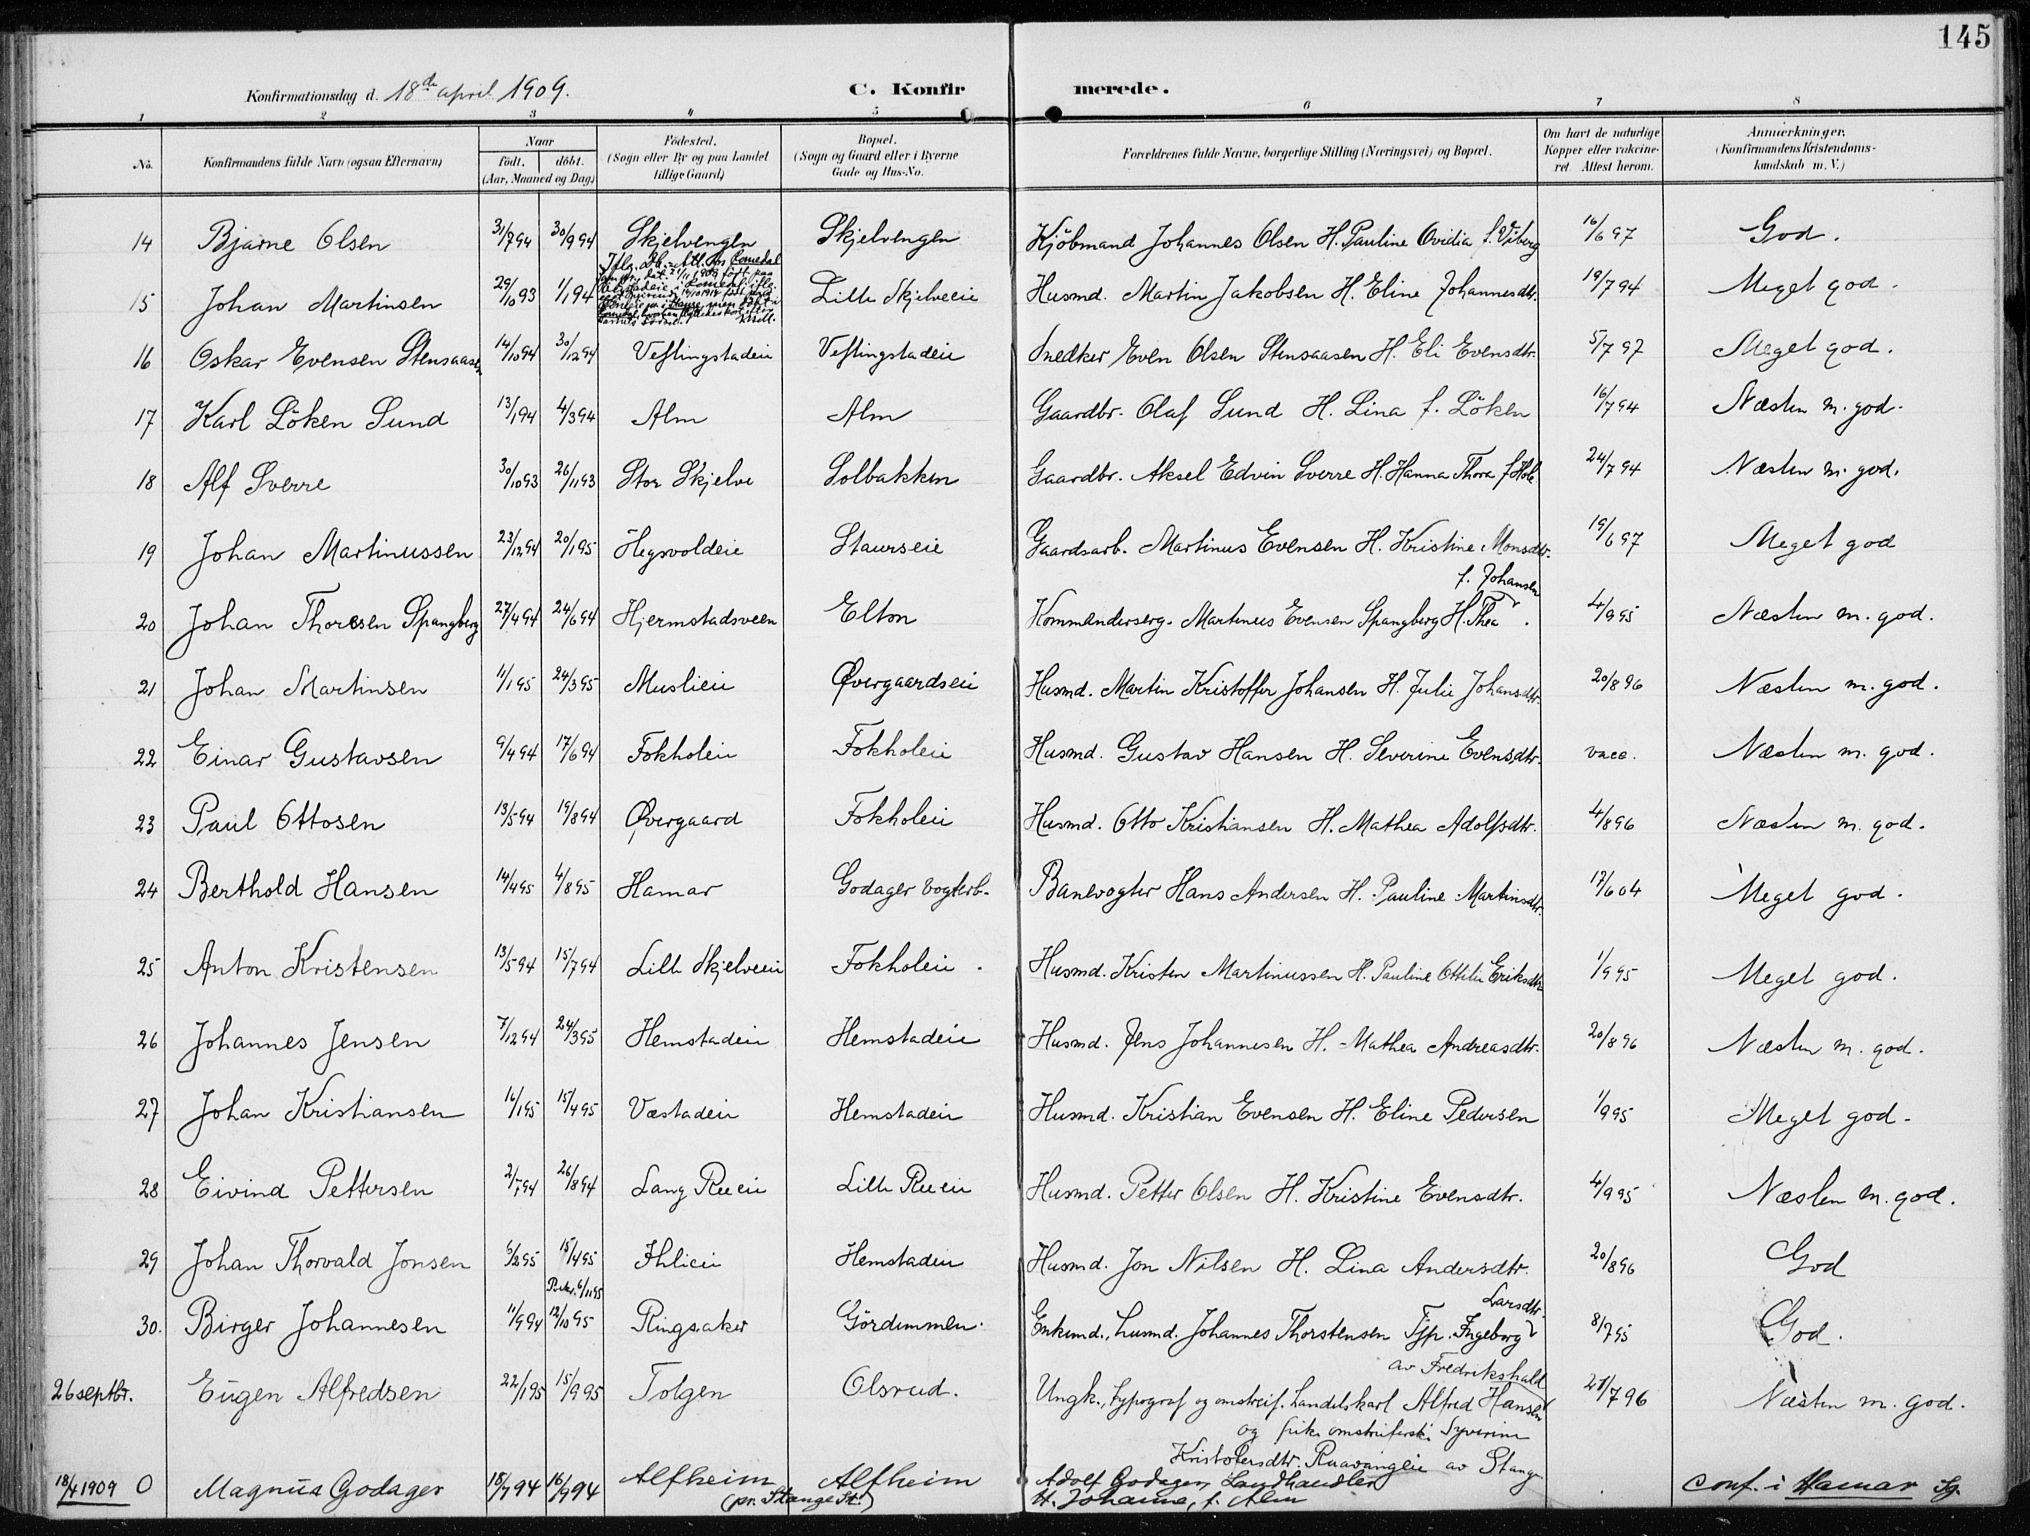 145
Konfirmationsdag d. 18de april 1909.
C. Konfirmerede.
1 2 3 4 5 6 7 8
No. Konfirmandens fulde Navn (ogsaa Efternavn) Naar født. døbt. (Aar, Maaned og Dag) Fødested. (Sogn eller By og paa Landet tillige Gaard) Bopæl. (Sogn og Gaard eller i Byerne Gade og Hus-No. Forældrenes fulde Navne, borgerlige Stilling (Næringsvei) og Bopæl. Om havt de naturlige Kopper eller vakcineret. Attest herom. Anmærkninger. (Konfirmandens Kristendomskundskab m. V.)
14 Bjarne Olsen 31/7 94 30/9 94 Skjelvengen Skjelvengen Kjöbmand Johannes Olsen H. Pauline Ovidia f. Viberg 16/6 97 God.
15 Johan Martinsen 29/10 93 1/1 94 Lille Skjelveeie Husmd. Martin Jakobsen H. Eline Johannesdtr. 19/7 94 Meget god.
16 Oskar Evensen Stensaasen 14/10 94 30/12 94 Veflingstadeie Veflingstadeie Snedker Even Olsen Stensaasen H. Eli Evensdtr. 5/7 97 Meget god.
17 Karl Löken Sund 13/1 94 4/3 94 Alm Alm Gaardbr. Olaf Sund H. Lina f. Löken 16/7 94 Næsten m. god.
18 Alf Sverre 30/10 93 26/11 93 Stor Skjelve Solbakken Gaardbr. Aksel Edvin Sverre H. Hanna Thora f. Hole 24/7 94 Næsten m. god.
19 Johan Martinussen 23/12 94 20/1 95 Hegsvoldeie Staurseie Gaardsarb. Martinus Evensen H. Kristine Monsdtr. 19/6 97 Meget god
f. Johansen
20 Johan Thoresen Spangberg 27/4 94 24/6 94 Hjermstadsveen Elton Kommenderserg. Martinus Evensen Spangberg H. Thea. 4/9 95 Næsten m. god.
21 Johan Martinsen 11/1 95 24/3 95 Muslieie Øvergaardseie Husmd. Martin Kristoffer Johansen H. Julie Johansdtr. 20/8 96 Næsten m. god.
22 Einar Gustavsen 9/4 94 17/6 94 Fokholeie Fokholeie Husmd. Gustav Hansen H. Severine Evensdtr. vacc. Næsten m. god.
23 Paul Ottosen 13/5 94 19/8 94 Øvergaard Fokholeie Husmd. Otto Kristiansen H. Mathea Adolfsdtr. 4/8 96 Næsten m. god.
24 Berthold Hansen 14/4 95 4/8 95 Hamar Godager vogterb. Banevogter Hans Andersen H. Pauline Martinsdtr. 17/6 04 Meget god.
25 Anton Kristensen 13/5 94 15/7 94 Lille Skjelveeie Fokholeie. Husmd. Kristen Martinussen H. Pauline Ottilie Eriksdtr. 1/9 95 Meget god.
26 Johannes Jensen 7/12 94 24/3 95 Hemstadeie Hemstadeie Husmd. Jens Johannesen H. Mathea Andreasdtr. 20/8 96 Næsten m. god.
27 Johan Kristiansen 16/1 95 15/4 95 Væstadeie Hemstadeie Husmd. Kristian Evensen H. Eline Pedersen 1/9 95 Meget god.
28 Eivind Pettersen 2/7 94 26/8 94 Lang Rueeie Lille Rueeie Husmd. Petter Olsen H. Kristine Evensdtr. 4/9 95 Næsten m. god.
29 Johan Thorvald Jonsen 6/2 95 15/4 95 Ihlieie Hemstadeie Husmd. Jon Nilsen H. Lina Andersdtr. 20/8 96 God
Larsdtr.
30. Birger Johannesen 11/9 94 12/10 95 Ringsaker Gördimmen. Enkemd., husmd. Johannes Thorstensen Tjp. Ingeborg 8/7 95 God.
av Fredrikshald
26 septbr. Eugen Alfredsen 22/1 95 15/9 95 Tolgen Olsrud. Ungk., typograf og omstreif. handelskarl Alfred Hansen 21/7 96 Næsten m. god.
og Syverine
Kristofersdtr. av Stange
18/4 1909 O Magnus Godager 18/7 94 16/9 94 Alfheim Alfheim Adolf Godager, Landhandler conf. i Hamar Sg.
(pr. Stange St.) H. Johanne, f. Alm